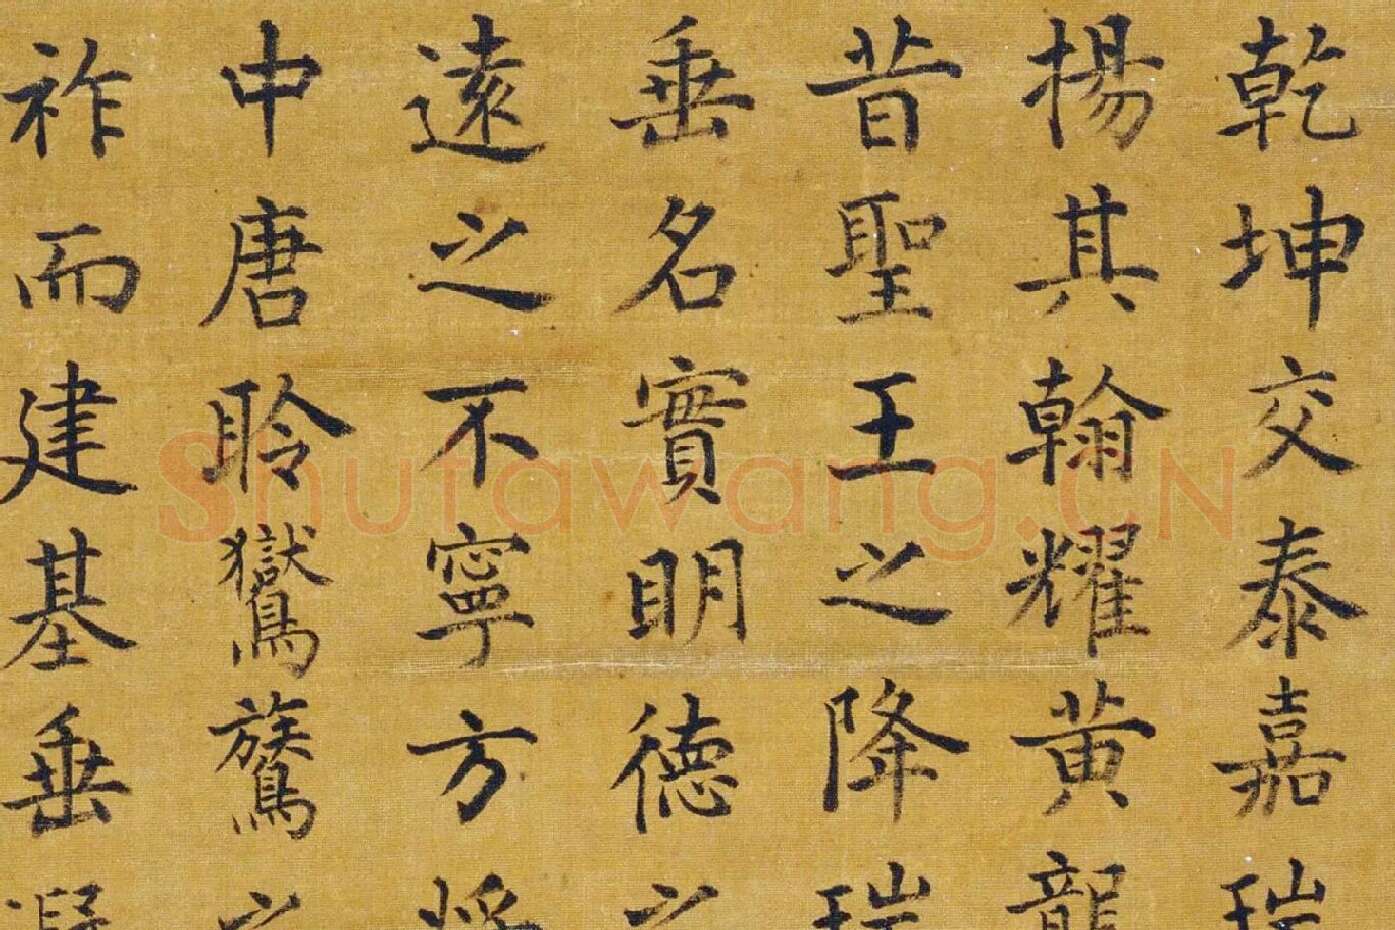 乾坤交泰嘉瑞
揚其翰耀黄龍
昔聖王之降瑞
垂名實明德之
遠之不寧方將
中唐聆鸑鷟之
祚而建基垂
Shufawang.CN